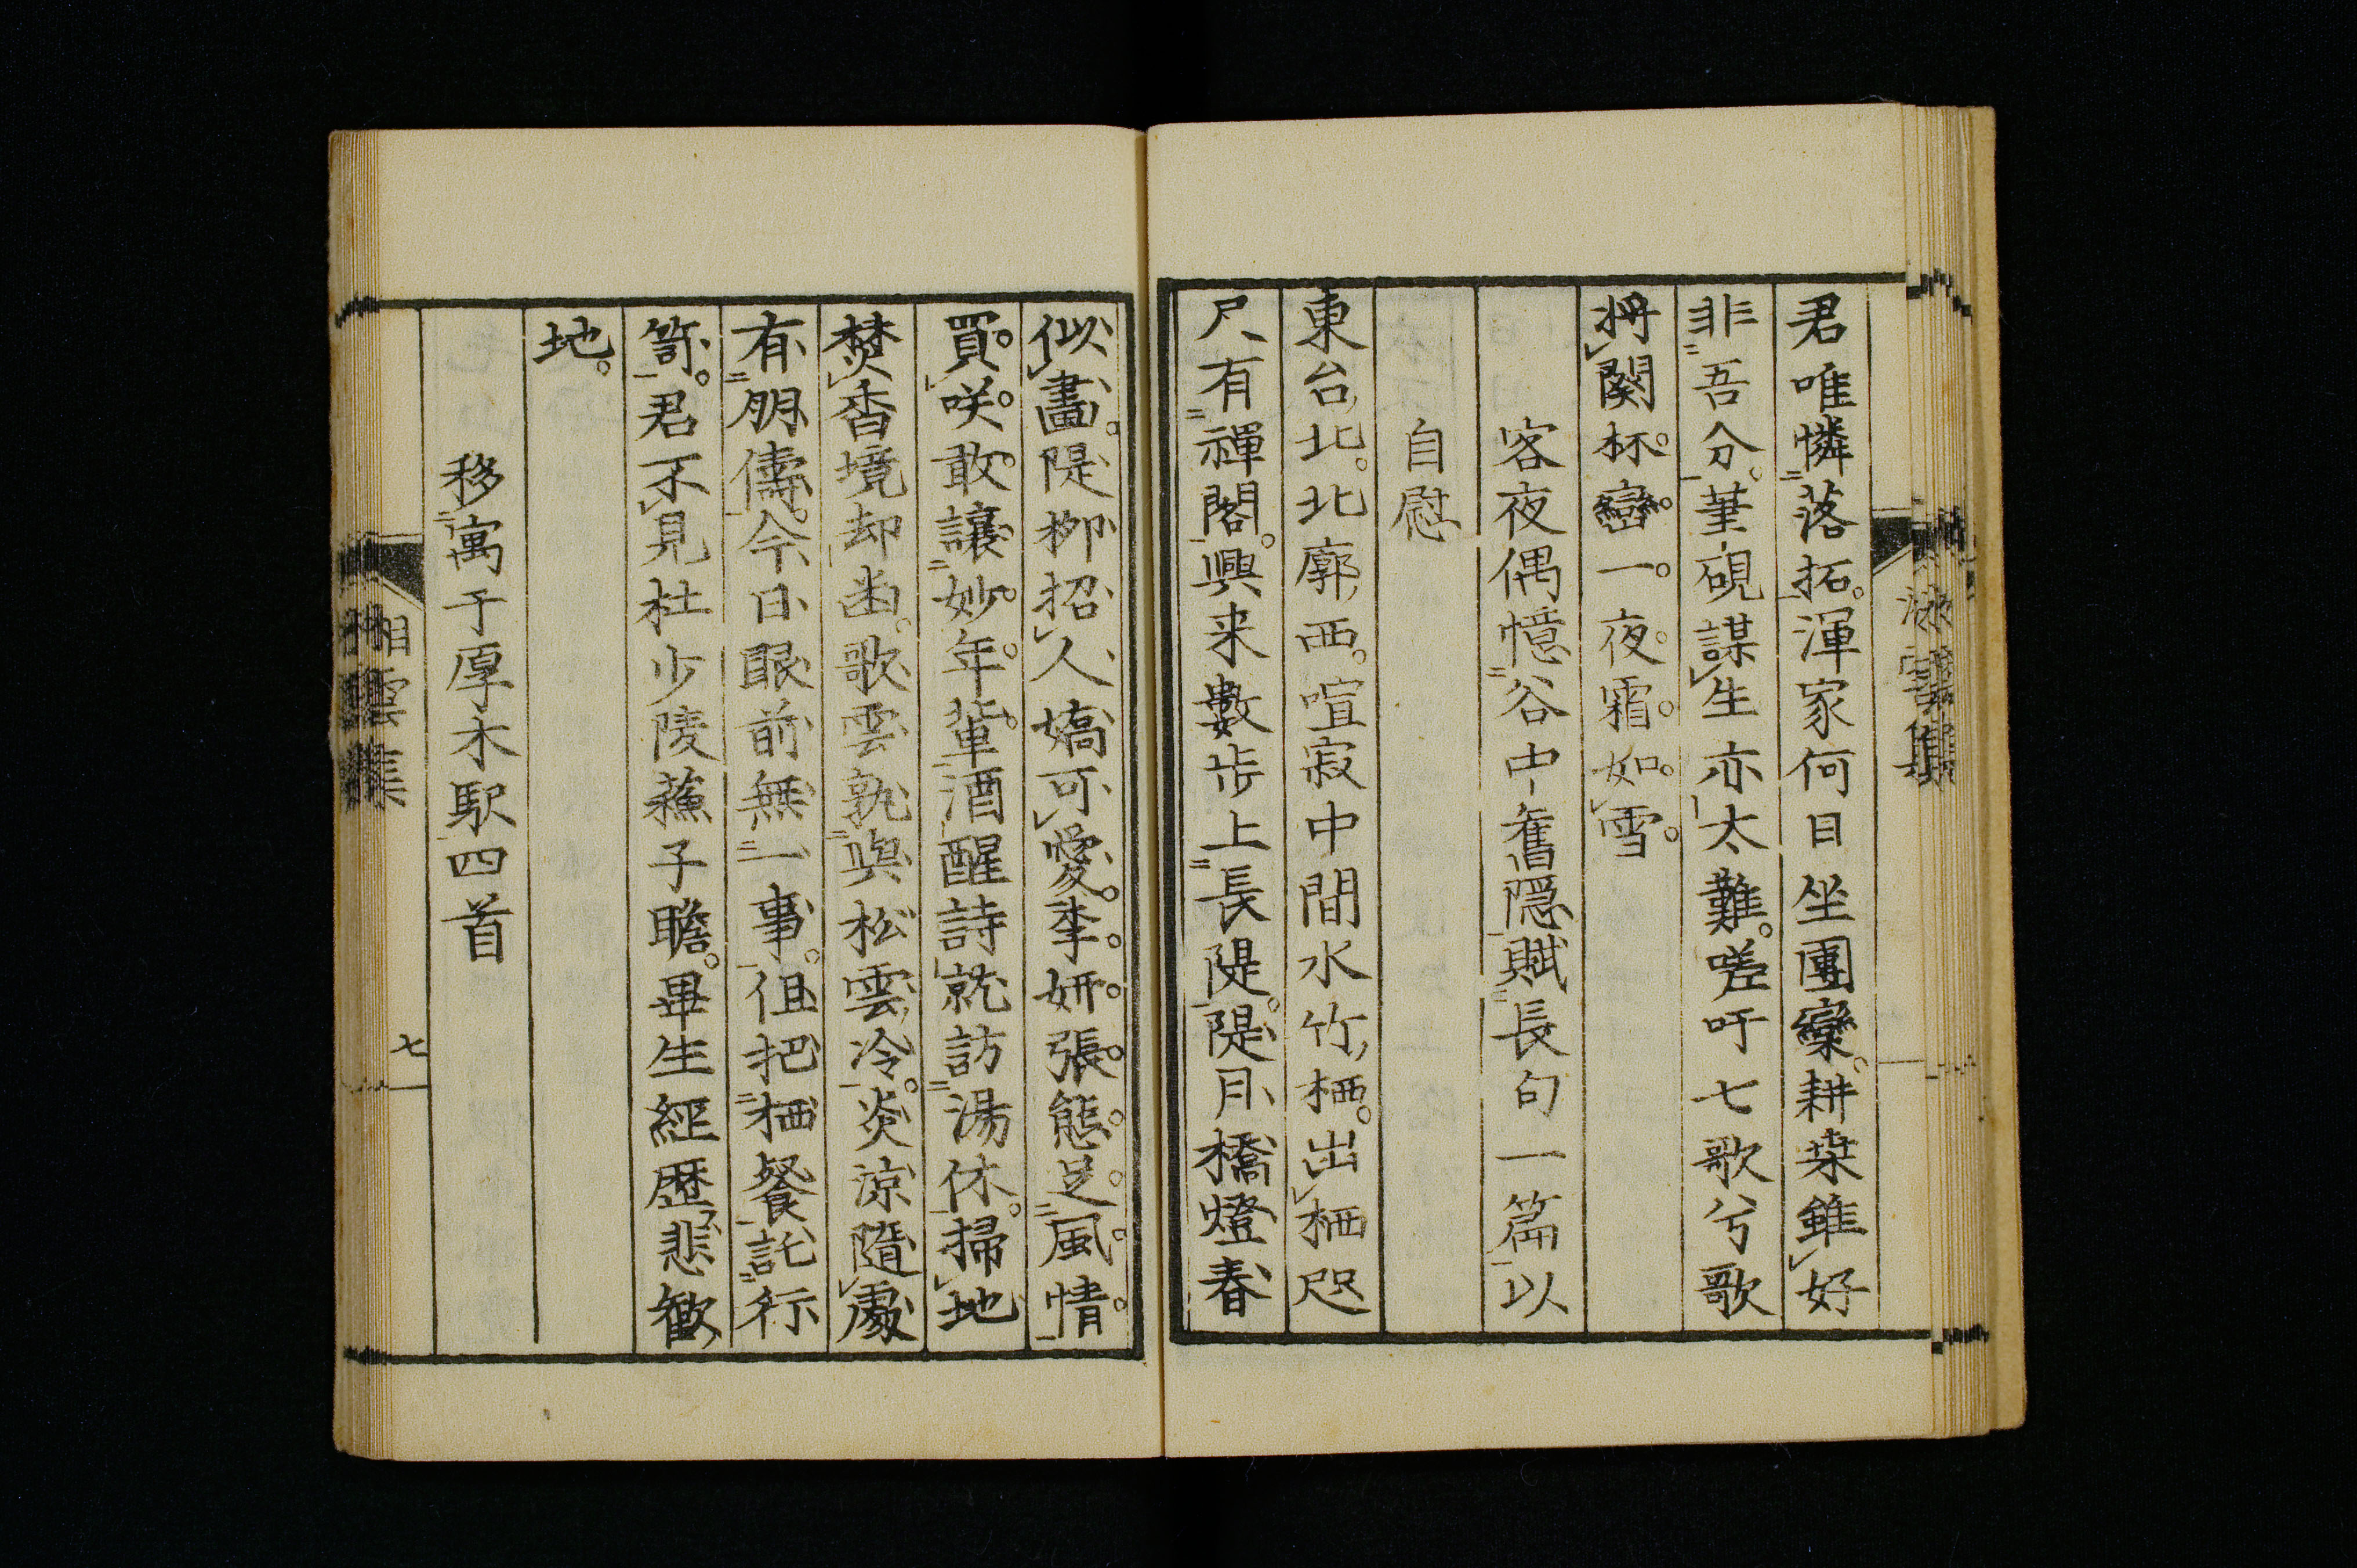 君唯憐落拓。渾家何日坐團欒。耕桒雖好
非吾分。筆硯謀生亦太難。嗟吁七歌兮歌
将闋。杯巒一夜霜如雪。
客夜偶憶谷中舊隠賦長句一篇以
自慰
東台北。北廓西。喧寂中間水竹栖。出栖咫
尺有禪閣。興来數歩上長隄。隄月橋燈春
似畫。隄柳招人嬌可愛。李妍張態足風情。
買咲敢讓妙年輩。酒醒詩就訪湯休。掃地
焚香境却幽。歌雲孰與松雲冷。炎涼隨處
有朋儔。今日眼前無一事。但把栖餐託行
笴。君不見杜少陵蘓子瞻。畢生經歴悲歓
地。
移寓于厚木駅四首
湘雲集
七